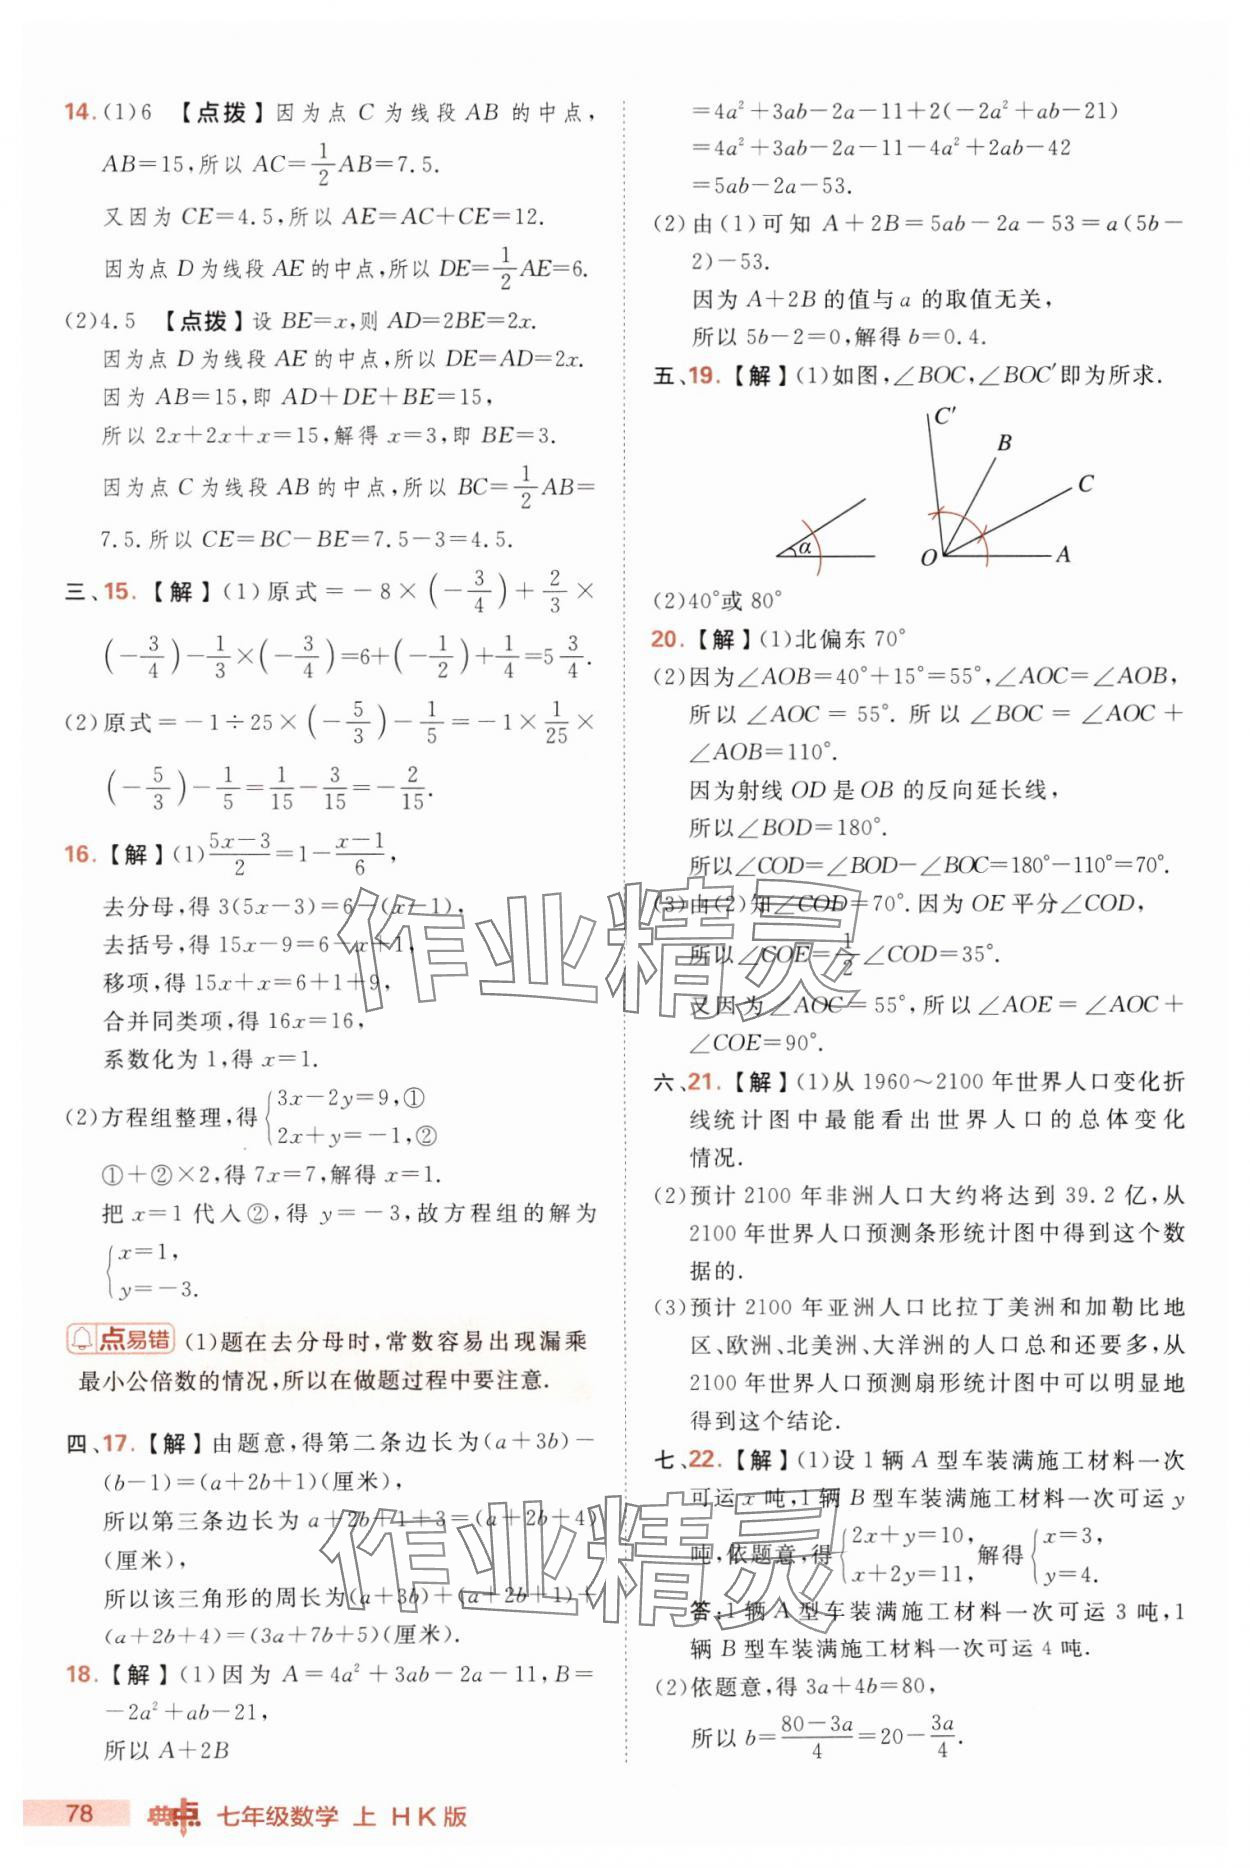 14.(1)6 【点拨】因为点 C 为线段 AB 的中点,
AB=15,所以 AC=1/2AB=7.5.
又因为 CE=4.5,所以 AE=AC+CE=12.
因为点 D 为线段 AE 的中点,所以 DE=1/2AE=6.
(2)4.5 【点拨】设 BE=x,则 AD=2BE=2x.
因为点 D 为线段 AE 的中点,所以 DE=AD=2x.
因为 AB=15,即 AD+DE+BE=15,
所以 2x+2x+x=15,解得 x=3,即 BE=3.
因为点 C 为线段 AB 的中点,所以 BC=1/2AB=
7.5.所以 CE=BC-BE=7.5-3=4.5.
三、15.【解】(1)原式=-8×(-3/4)+2/3×
(-3/4)-1/3×(-3/4)=6+(-1/2)+1/4=5 3/4.
(2)原式=-1÷25×(-5/3)-1/5=-1×1/25×
(-5/3)-1/5=1/15-3/15=-2/15.
16.【解】(1)5x-3/2=1-x-1/6,
去分母,得 3(5x-3)=6-(x-1),
去括号,得 15x-9=6-x+1,
移项,得 15x+x=6+1+9,
合并同类项,得 16x=16,
系数化为 1,得 x=1.
(2)方程组整理,得{3x-2y=9,①
2x+y=-1,②
①+②×2,得 7x=7,解得 x=1.
把 x=1 代入②,得 y=-3,故方程组的解为
{x=1,
y=-3.
点易错 (1)题在去分母时,常数容易出现漏乘
最小公倍数的情况,所以在做题过程中要注意.
四、17.【解】由题意,得第二条边长为(a+3b)-
(b-1)=(a+2b+1)(厘米),
所以第三条边长为 a+2b+1+3=(a+2b+4)
(厘米),
所以该三角形的周长为(a+3b)+(a+2b+1)+
(a+2b+4)=(3a+7b+5)(厘米).
18.【解】(1)因为 A=4a²+3ab-2a-11,B=
-2a²+ab-21,
所以 A+2B
=4a²+3ab-2a-11+2(-2a²+ab-21)
=4a²+3ab-2a-11-4a²+2ab-42
=5ab-2a-53.
(2)由(1)可知 A+2B=5ab-2a-53=a(5b-
2)-53.
因为 A+2B 的值与 a 的取值无关,
所以 5b-2=0,解得 b=0.4.
五、19.【解】(1)如图,∠BOC,∠BOC′即为所求.
C′
B
C
α
O
A
(2)40°或 80°
20.【解】(1)北偏东 70°
(2)因为∠AOB=40°+15°=55°,∠AOC=∠AOB,
所以∠AOC=55°.所以∠BOC=∠AOC+
∠AOB=110°.
因为射线 OD 是 OB 的反向延长线,
所以∠BOD=180°.
所以∠COD=∠BOD-∠BOC=180°-110°=70°.
(3)由(2)知∠COD=70°.因为 OE 平分∠COD,
所以∠COE=1/2∠COD=35°.
又因为∠AOC=55°,所以∠AOE=∠AOC+
∠COE=90°.
六、21.【解】(1)从 1960~2100 年世界人口变化折
线统计图中最能看出世界人口的总体变化
情况.
(2)预计 2100 年非洲人口大约将达到 39.2 亿,从
2100 年世界人口预测条形统计图中得到这个数
据的.
(3)预计 2100 年亚洲人口比拉丁美洲和加勒比地
区、欧洲、北美洲、大洋洲的人口总和还要多,从
2100 年世界人口预测扇形统计图中可以明显地
得到这个结论.
七、22.【解】(1)设 1 辆 A 型车装满施工材料一次
可运 x 吨,1 辆 B 型车装满施工材料一次可运 y
吨,依题意,得{2x+y=10, x+2y=11, 解得{x=3, y=4.
答:1 辆 A 型车装满施工材料一次可运 3 吨,1
辆 B 型车装满施工材料一次可运 4 吨.
(2)依题意,得 3a+4b=80,
所以 b=80-3a/4=20-3a/4.
作业精灵
作业精灵
78 典点 七年级数学 上 HK版